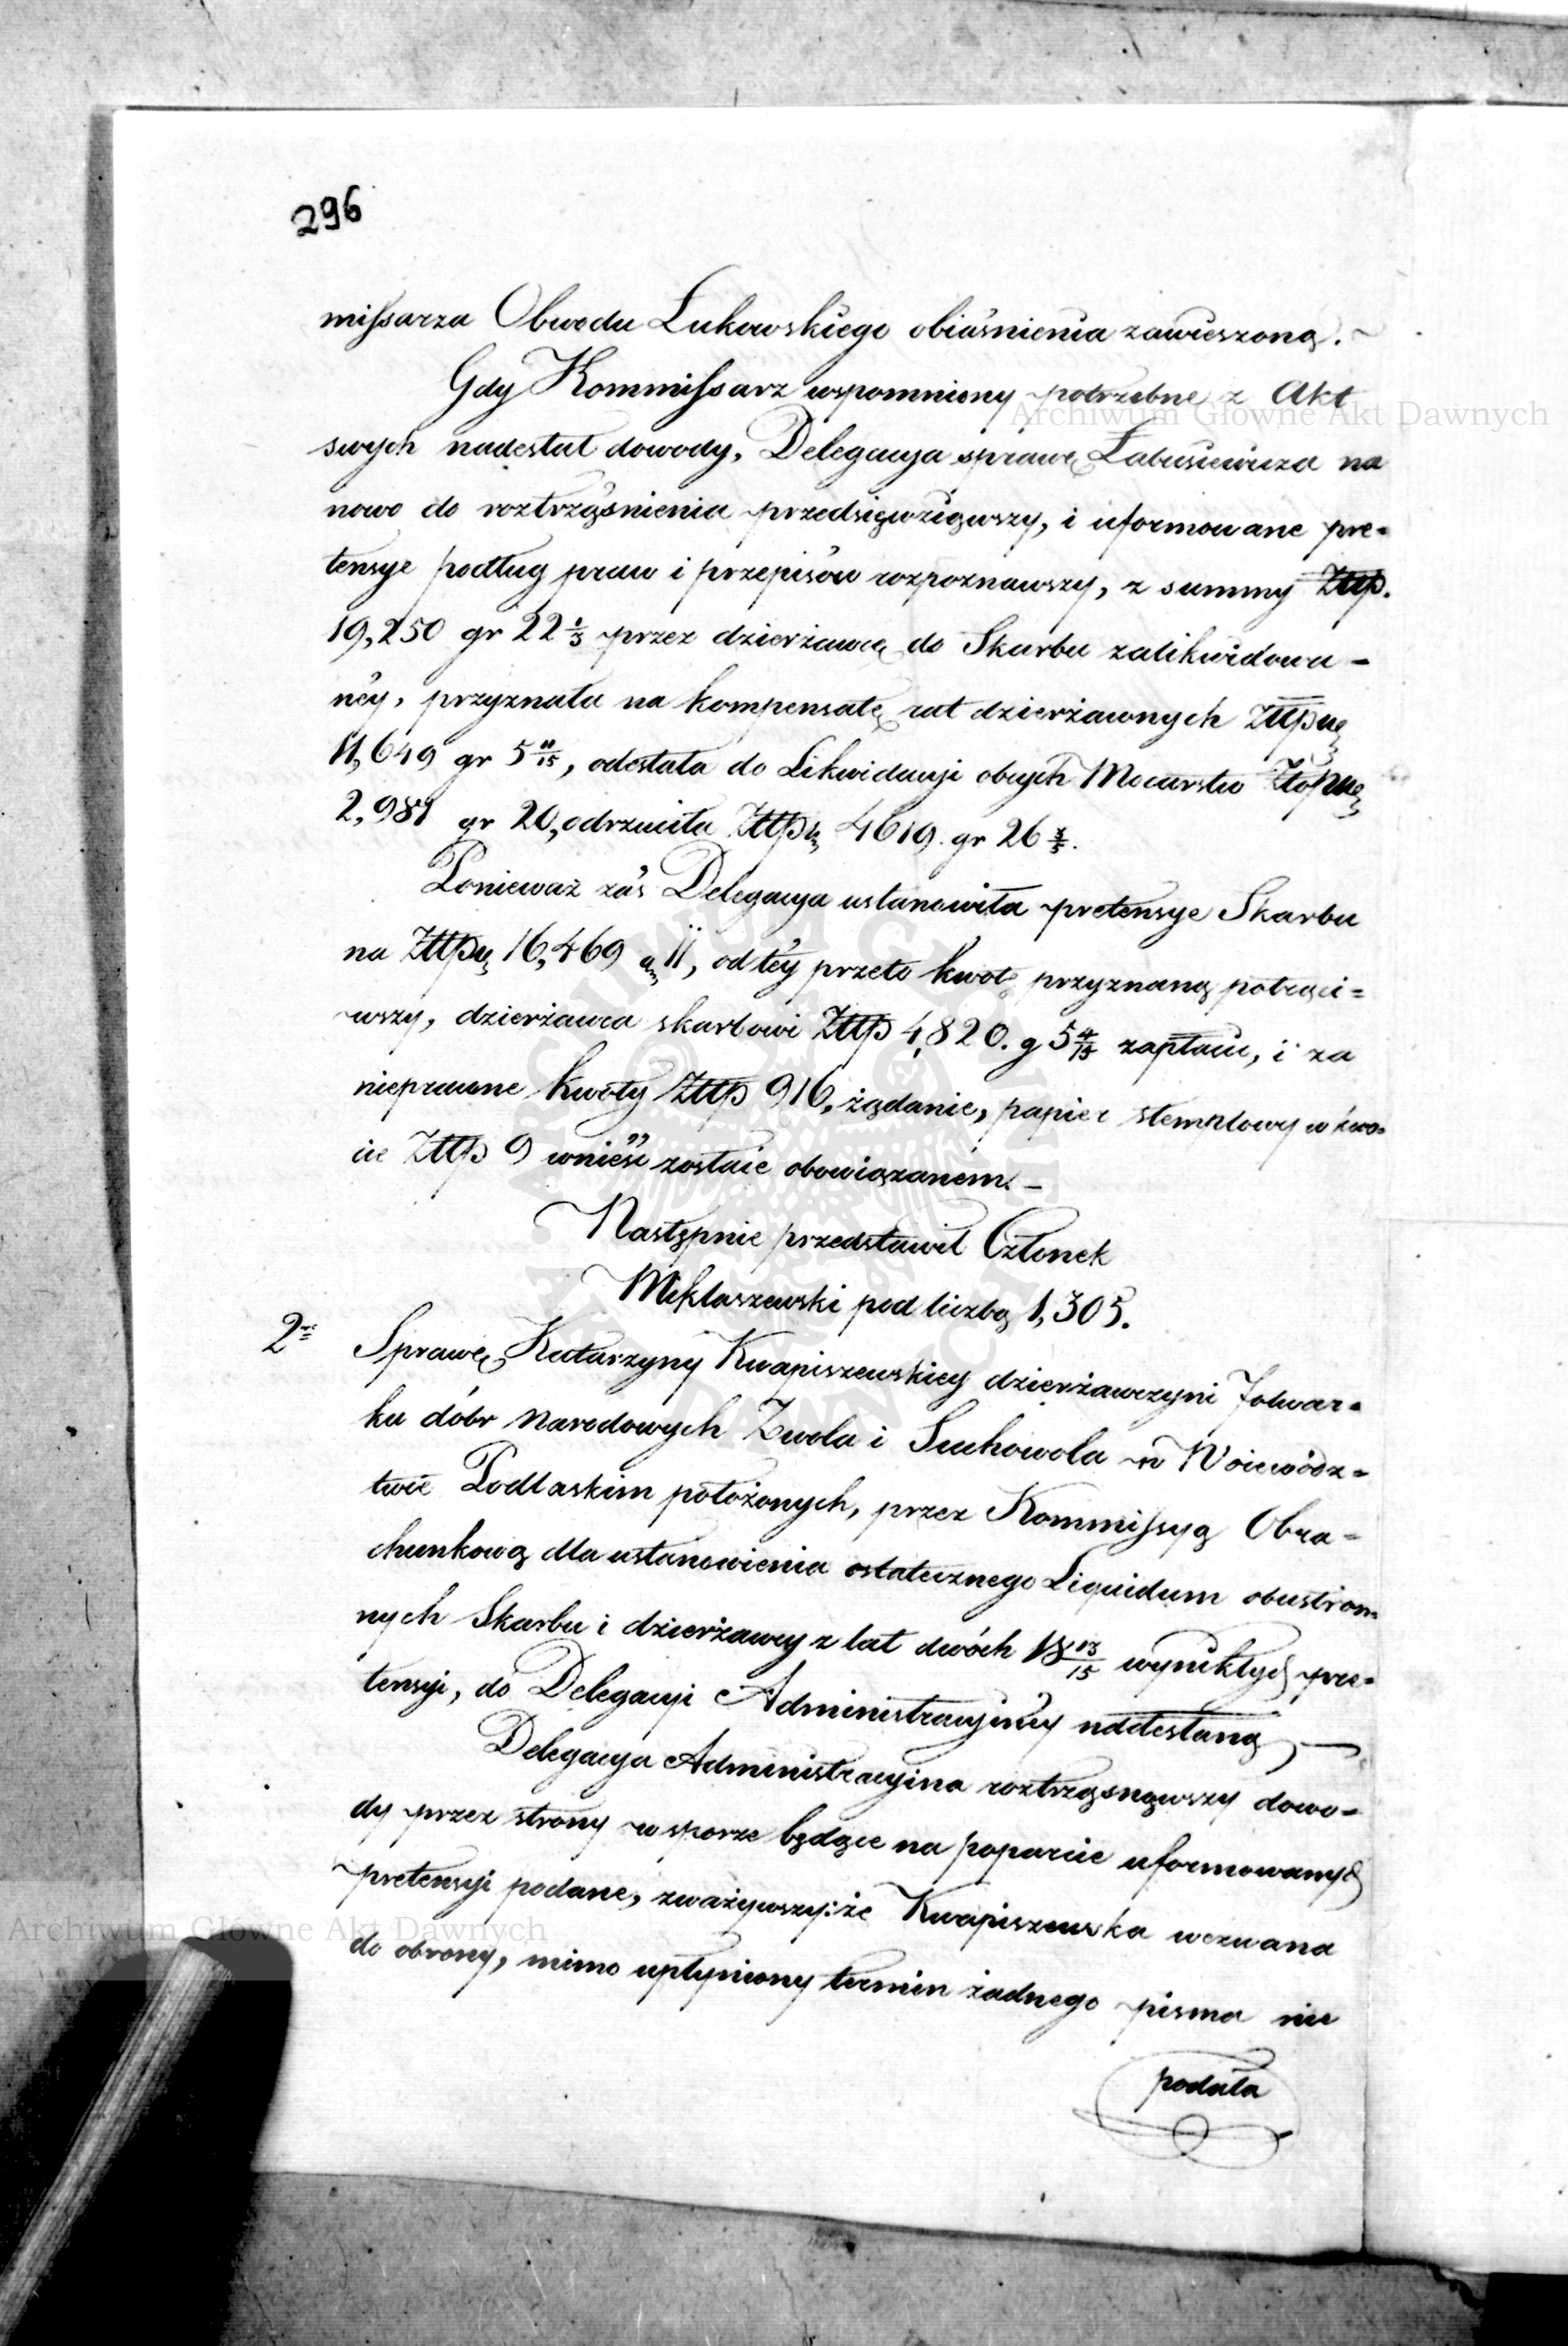 296
missarza Obwodu Łukowskiego obiaśnienia zawieszoną.
Gdy Kommissarz wspomniony potrzebne z Akt
swych nadesłał dowody, Delegacya sprawę Łabusiewicza na
nowo do roztrząśnienia przedsięwziąwszy, i uformowane pre=
tensye podług praw i przepisów rozpoznawszy, z summy Złłp.
19,250 gr 22 1/3 przez dzierżawcę do Skarbu zalikwidowa-
néy, przyznała na kompensatę rat dzierżawnych Złłpnę
11,649 gr 5 11/15, odesłała do Likwidacyi obcych Mocarstw Złopnę
2,981 gr 20, odrzuciła Złłp 4619. gr 26 3/5.
Ponieważ zaś Delegacya ustanowiła pretensye Skarbu
na Złłpę 16,469 g 11, od téy przeto kwotę przyznaną potrąci=
wszy, dzierżawca skarbowi Złłp 4,820. g 5 4/15 zapłaci, i za
nieprawne kwoty Złłp 916, żądanie, papier stemplowy w kwo=
cie Złłp 9 wnieść zostaie obowiązaném. -
Następnie przedstawił Członek
Miklaszewski pod liczbą 1,305.
2re Sprawę Katarzyny Kwapiszewskiey dzierżawczyni Folwar=
ku dóbr Narodowych Zwola i Suchowola w Woiewódz=
twie Podlaskim położonych, przez Kommissyą Obra=
chunkową dla ustanowienia ostatecznego Liquidum obustron=
nych Skarbu i dzierżawcy z lat dwóch 18 13/15 wynikłych pre=
tensyi, do Delegacyi Administracyinéy nadesłaną, -
Delegacya Administracyina roztrząsnąwszy dowo=
dy przez strony w sporze będące na poparcie uformowanych
pretensyi podane, zważywszy: że Kwapiszewska wezwana
do obrony, mimo upłyniony termin żadnego pisma nie
podała
Archiwum Główne Akt Dawnych
Archiwum Główne Akt Dawnych